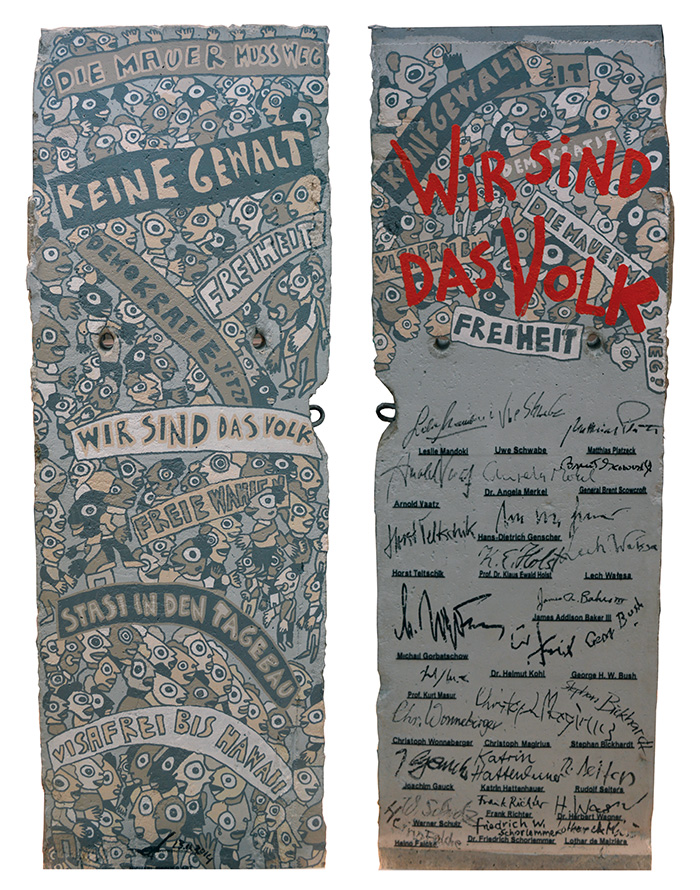 DIE MAUER MUSS WEG
KEINE GEWALT
FREIHEIT
DEMOKRATIE JETZT
WIR SIND DAS VOLK
FREIE WAHLEN
STASI IN DEN TAGEBAU
VISAFREI BIS HAWAII
KEINE GEWALT
WIR SIND
DEMOKRATIE
DIE MAUER MUSS WEG?
DAS VOLK
FREIHEIT
Leslie Mandoki Uwe Schwabe Matthias Platzeck
Arnold Vaatz Dr. Angela Merkel General Brent Scowcroft
Hans-Dietrich Genscher
Horst Teltschik Prof. Dr. Klaus Ewald Holst Lech Wałesa
James Addison Baker III
Michail Gorbatschow Dr. Helmut Kohl George H. W. Bush
Prof. Kurt Masur
Chr. Wonneberger
Christoph Wonneberger Christoph Magirius Stephan Bickhardt
Katrin
Hattenhauer
Joachim Gauck Katrin Hattenhauer Rudolf Seiters
Frank Richter
Frank Richter Dr. Herbert Wagner
Werner Schulz Friedrich W.
Schorlemmer
Heino Falcke Dr. Friedrich Schorlemmer Lothar de Maizière